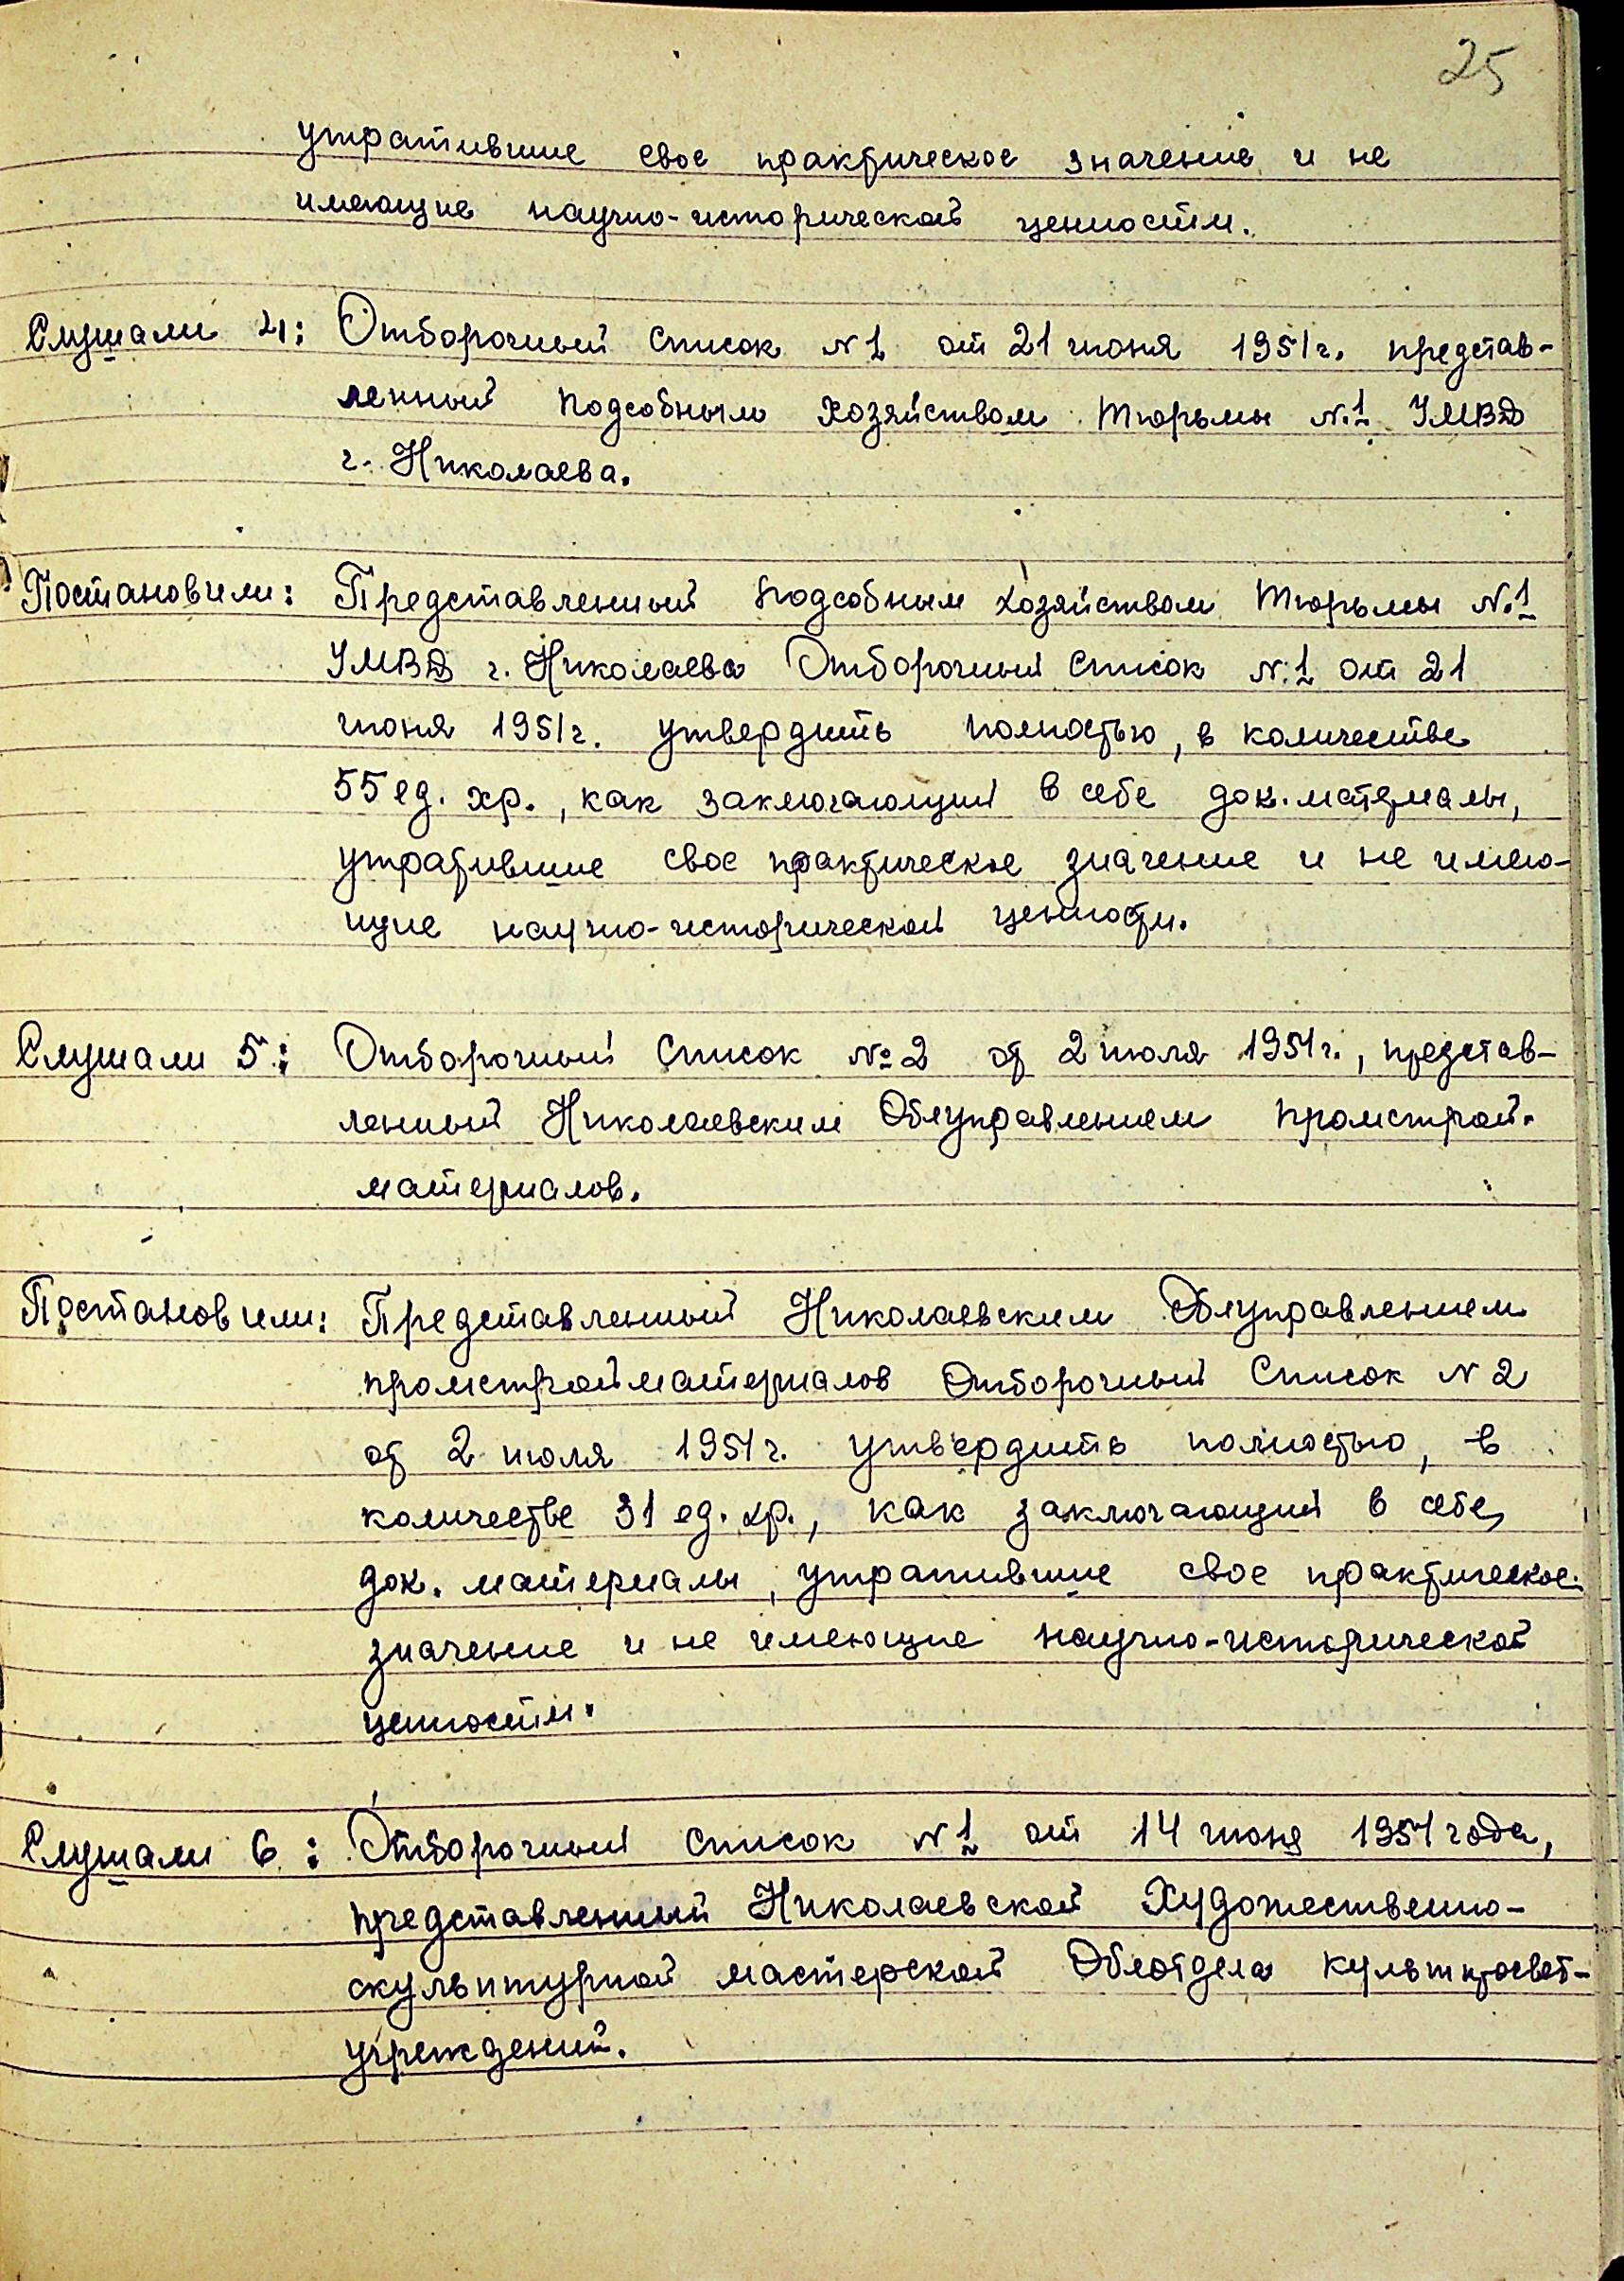 25
утратившие свое практическое значение и не
имеющие научно-исторической ценности.
Слушали 4: Отборочный список №1 от 21 июня 1951г. представ-
ленный подсобным хозяйством тюрьмы №1 УМВД
г. Николаева.
Постановили: Представленный подсобным хозяйством тюрьмы №1
УМВД г. Николаева Отборочный список №1 от 21
июня 1951г. утвердить полностью, в количестве
55 ед. хр., как заключающий в себе док. материалы,
утратившие свое практическое значение и не имею-
щие научно-исторической ценности.
Слушали 5: Отборочный список №2 от 2 июля 1951г., представ-
ленный Николаевским Облуправлением промстрой-
материалов.
Постановили: Представленный Николаевским Облуправлением
промстройматериалов Отборочный список N 2
от 2 июля 1951г. утвердить полностью, в
количестве 31 ед. хр., как заключающий в себе
док. материалы, утратившие свое практическое
значение и не имеющие научно-исторической
ценности.
Слушали 6: Отборочный список №1 от 14 июня 1951 года,
представленный Николаевской Художественно-
скульптурной мастерской Облотдела культпросвет-
учреждений.